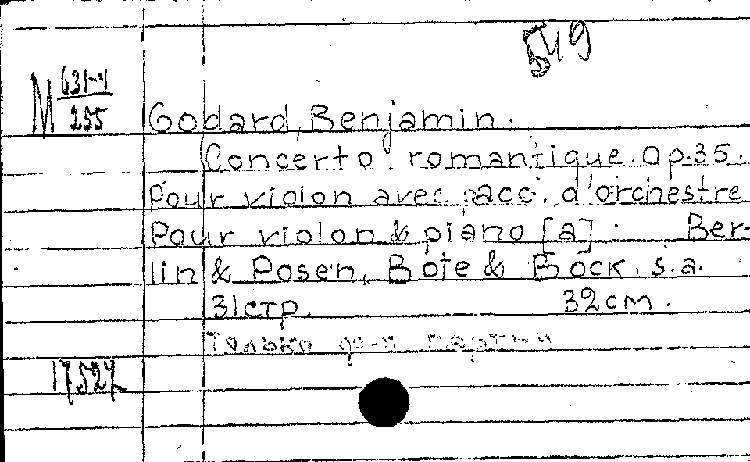 549
M 631-4
255
Godard, Benjamin.
Concerto romantique. Op.35.
Pour violon avec acc. d'orchestre
Pour violon & piano [a]. Ber-
lin & Posen, Bote & Bock. s.a.
31стр. 32см.
Только партии
17527